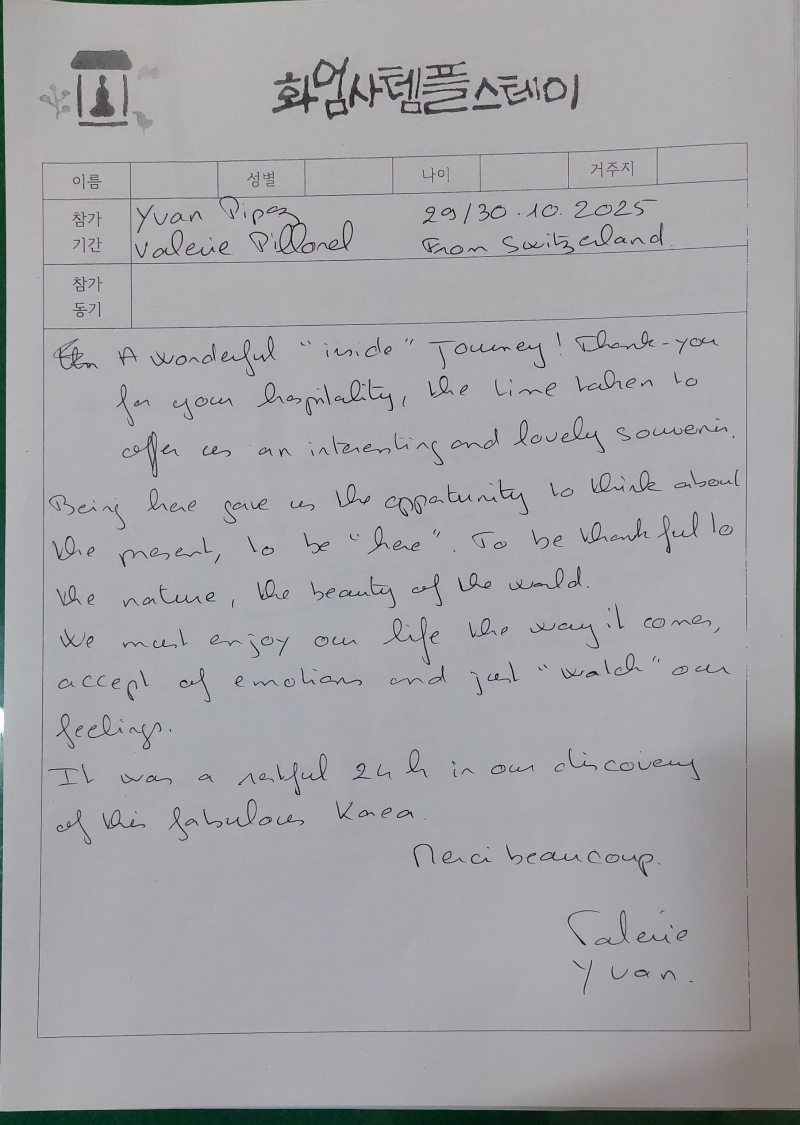 화엄사템플스테이
이름 성별 나이 거주지
참가 기간
Yvan Pipoz 29/30.10.2025
Valerie Pillonel From Switzerland
참가 동기
A wonderful "inside" Journey! Thank-you
for your hospitality, the time taken to
offer us an interesting and lovely souvenir.
Being here gave us the oppatunity to think about
the present, to be "here". To be thankful to
the nature, the beauty of the world.
We must enjoy our life the way it comes,
accept of emotions and just "watch" our
feelings.
It was a restful 24 h in our discovery
of this fabulous Korea.
Merci beaucoup.
Valerie
Yvan.